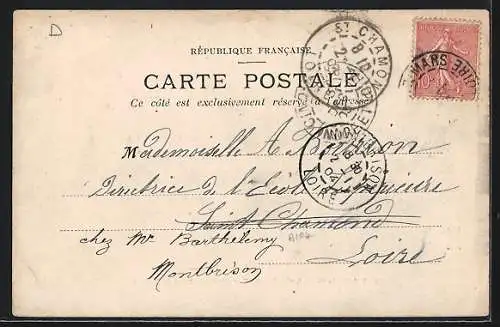 D
RÉPUBLIQUE FRANÇAISE
CARTE POSTALE
Ce côté est exclusivement réservé à l'adresse
ST CHAMOND
LOIRE
Mademoiselle A.
Directrice de l'École Supérieure
Saint Chamond
chez Mr Barthélemy
Loire
Montbrison